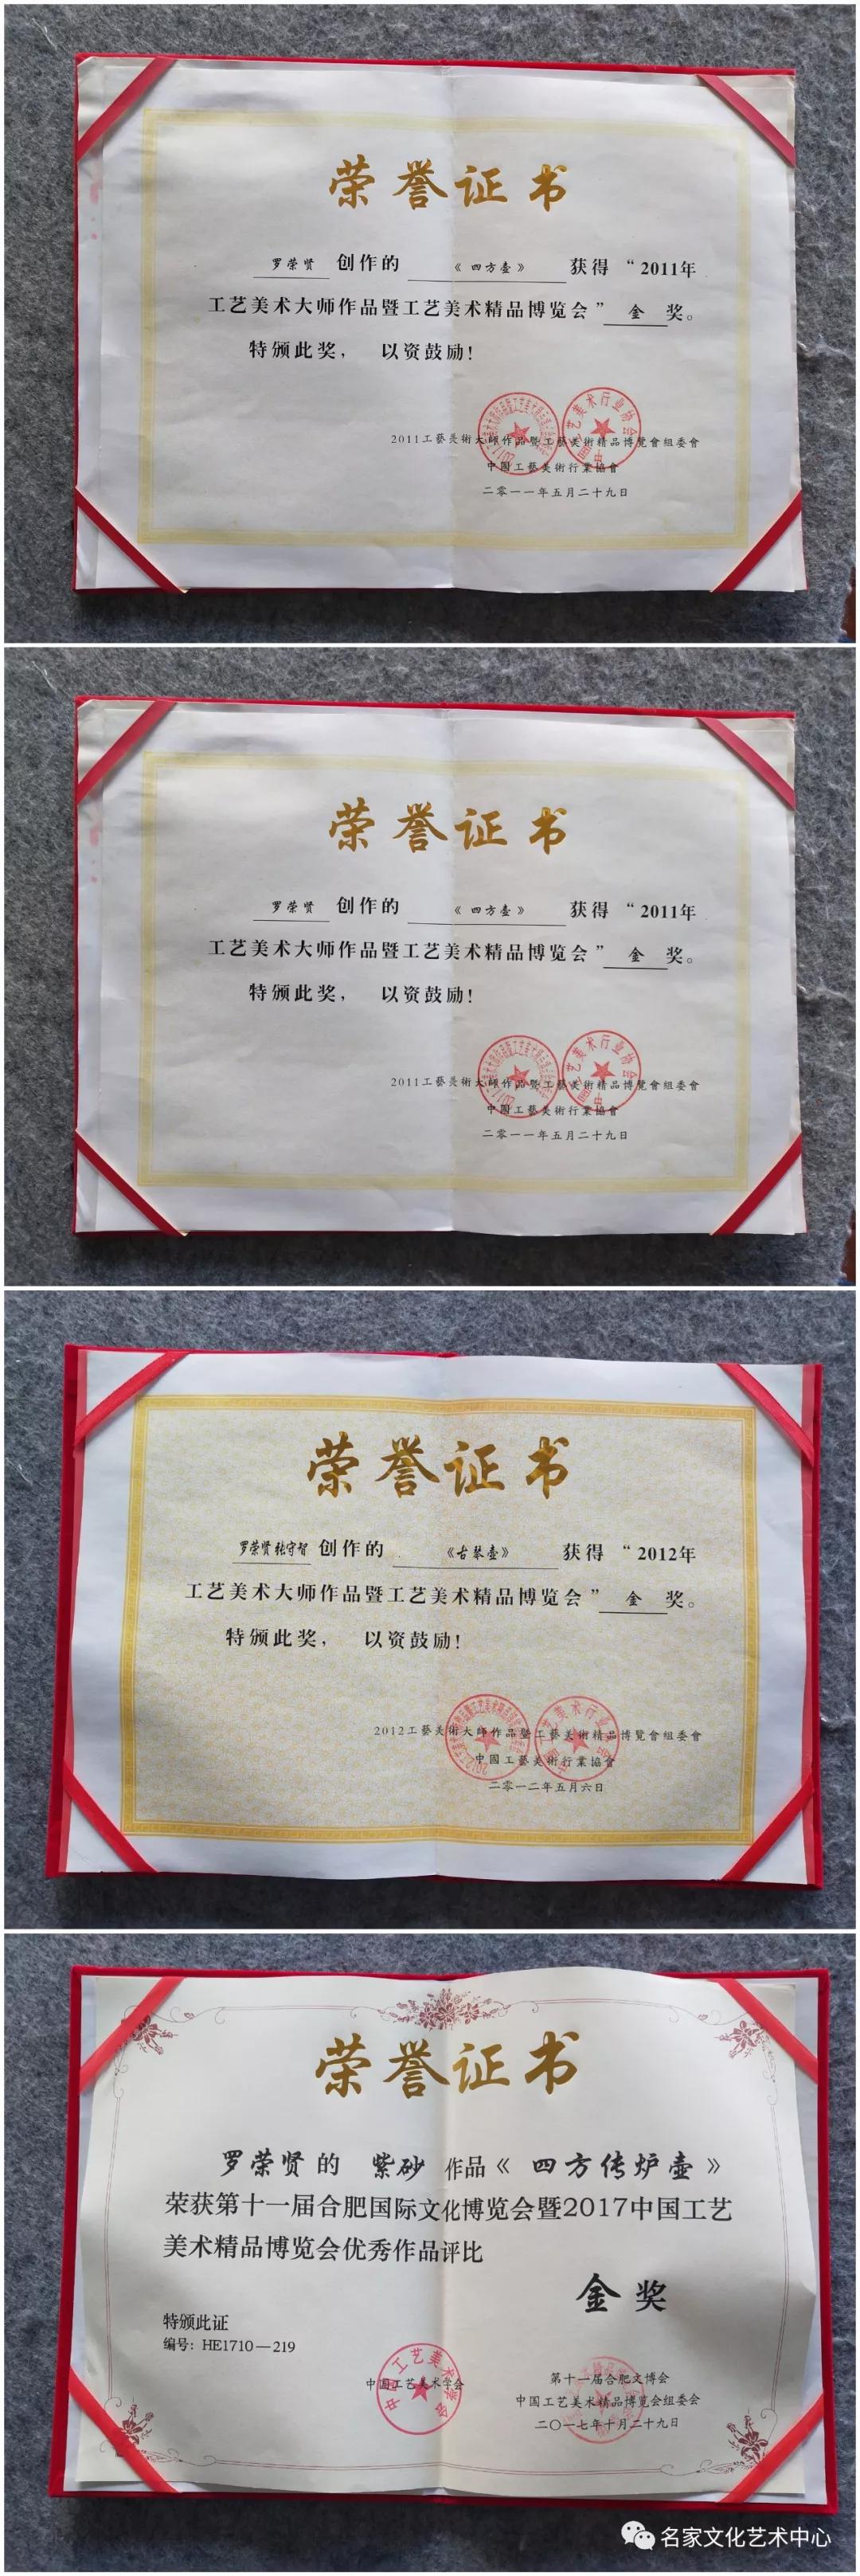 荣誉证书
罗荣贤 创作的 《四方壶》 获得 “2011年
工艺美术大师作品暨工艺美术精品博览会” 金 奖。
特颁此奖， 以资鼓励！
2011工藝美術大師作品暨工藝美術精品博覽會組委會
中國工藝美術行業協會
二零一一年五月二十九日
荣誉证书
罗荣贤 创作的 《四方壶》 获得 “2011年
工艺美术大师作品暨工艺美术精品博览会” 金 奖。
特颁此奖， 以资鼓励！
2011工藝美術大師作品暨工藝美術精品博覽會組委會
中國工藝美術行業協會
二零一一年五月二十九日
荣誉证书
罗荣贤 张守智 创作的 《古琴壶》 获得 “2012年
工艺美术大师作品暨工艺美术精品博览会” 金 奖。
特颁此奖， 以资鼓励！
2012工藝美術大師作品暨工藝美術精品博覽會組委會
中國工藝美術行業協會
二零一二年五月六日
荣誉证书
罗荣贤的 紫砂 作品《 四方传炉壶 》
荣获第十一届合肥国际文化博览会暨2017中国工艺
美术精品博览会优秀作品评比
金奖
特颁此证
编号：HE1710—219
中国工艺美术学会
第十一届合肥文博会
中国工艺美术精品博览会组委会
二〇一七年十月二十九日
名家文化艺术中心